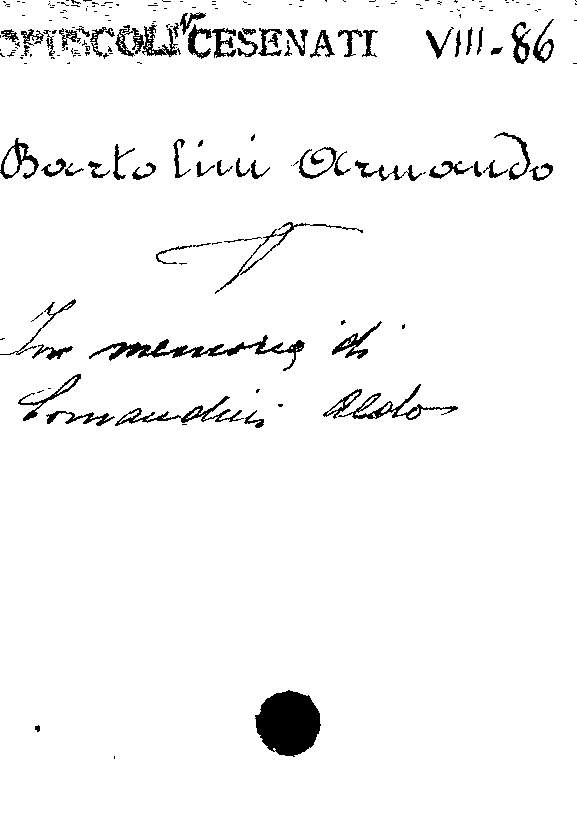 OPUSCOLI CESENATI VIII-86
Bartolini Armando
In memoria di
Comandini Aldo